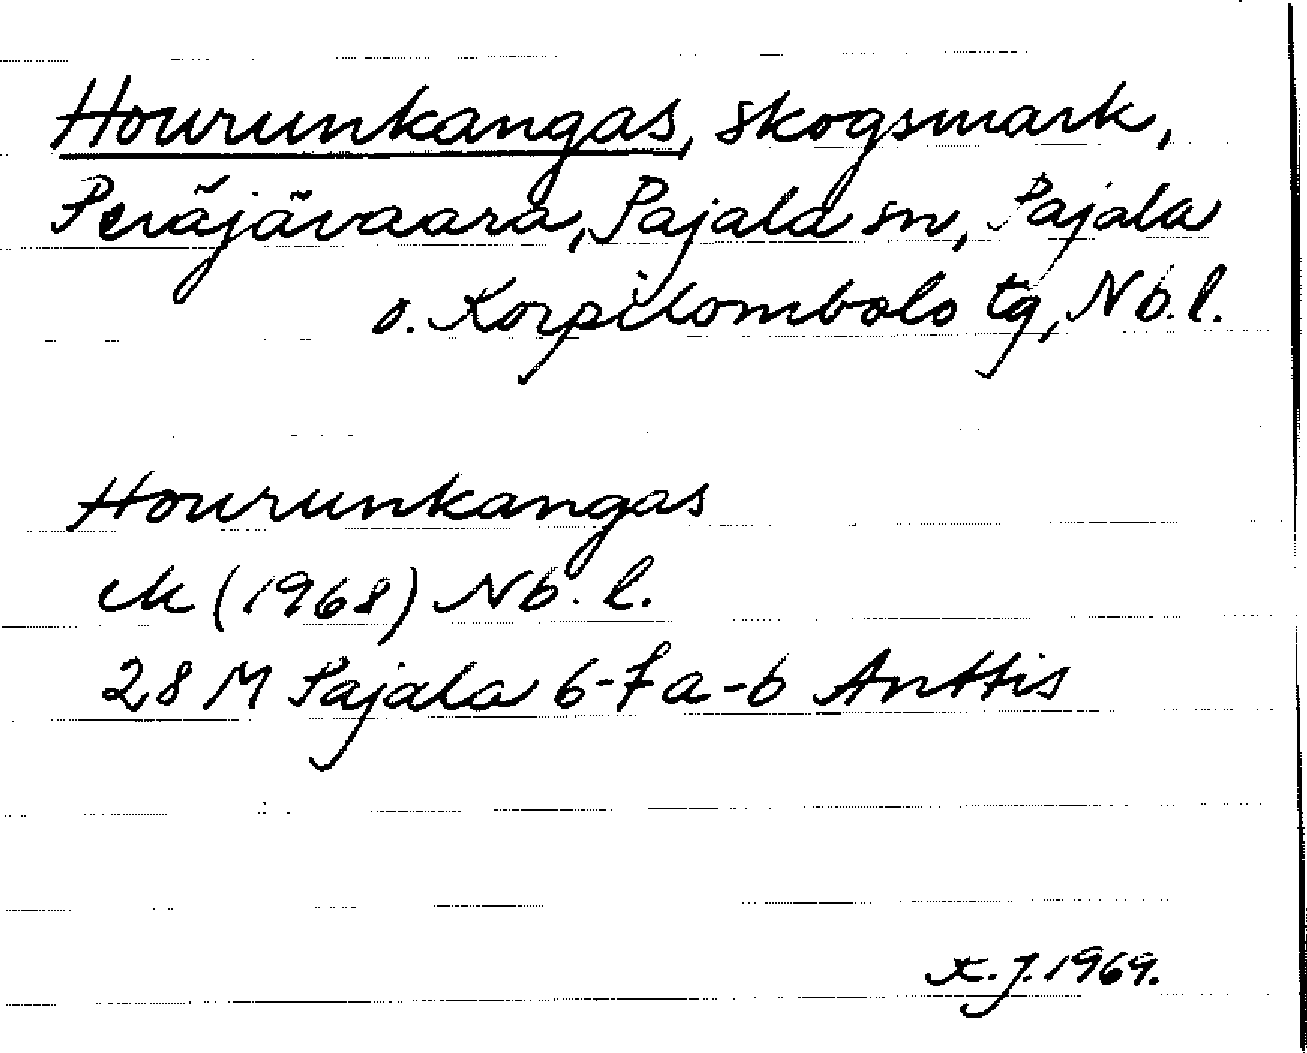 Hourunkangas, skogsmark,
Peräjävaara, Pajala sn, Pajala
o. Korpilombolo tg, Nb. l.
Hourunkangas
ek (1968) Nb. l.
28 M Pajala 6-7 a-b Anttis
K. J. 1969.